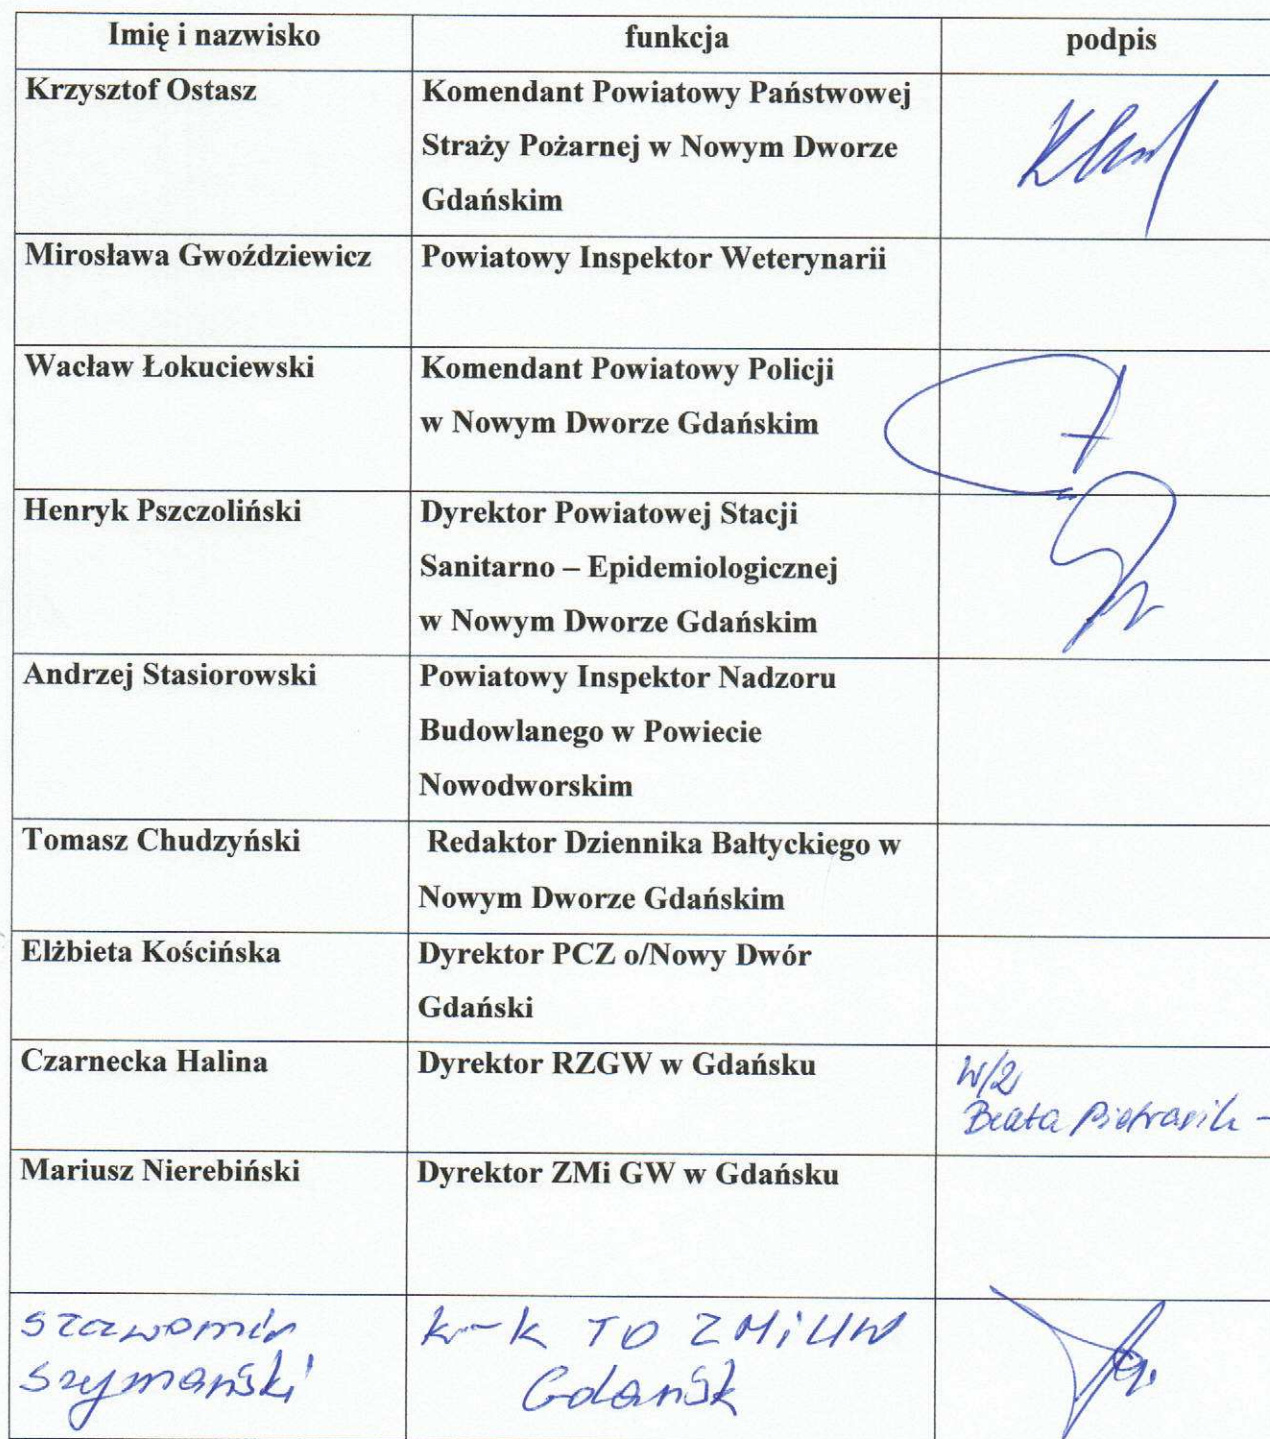 Imię i nazwisko funkcja podpis
Krzysztof Ostasz Komendant Powiatowy Państwowej
Straży Pożarnej w Nowym Dworze
Gdańskim
Mirosława Gwoździewicz Powiatowy Inspektor Weterynarii
Wacław Łokuciewski Komendant Powiatowy Policji
w Nowym Dworze Gdańskim
Henryk Pszczoliński Dyrektor Powiatowej Stacji
Sanitarno – Epidemiologicznej
w Nowym Dworze Gdańskim
Andrzej Stasiorowski Powiatowy Inspektor Nadzoru
Budowlanego w Powiecie
Nowodworskim
Tomasz Chudzyński Redaktor Dziennika Bałtyckiego w
Nowym Dworze Gdańskim
Elżbieta Kościńska Dyrektor PCZ o/Nowy Dwór
Gdański
Czarnecka Halina Dyrektor RZGW w Gdańsku
Beata Pietrasik -
Mariusz Nierebiński Dyrektor ZMi GW w Gdańsku
k-k TO ZMiUW
Szymański Gdańsk